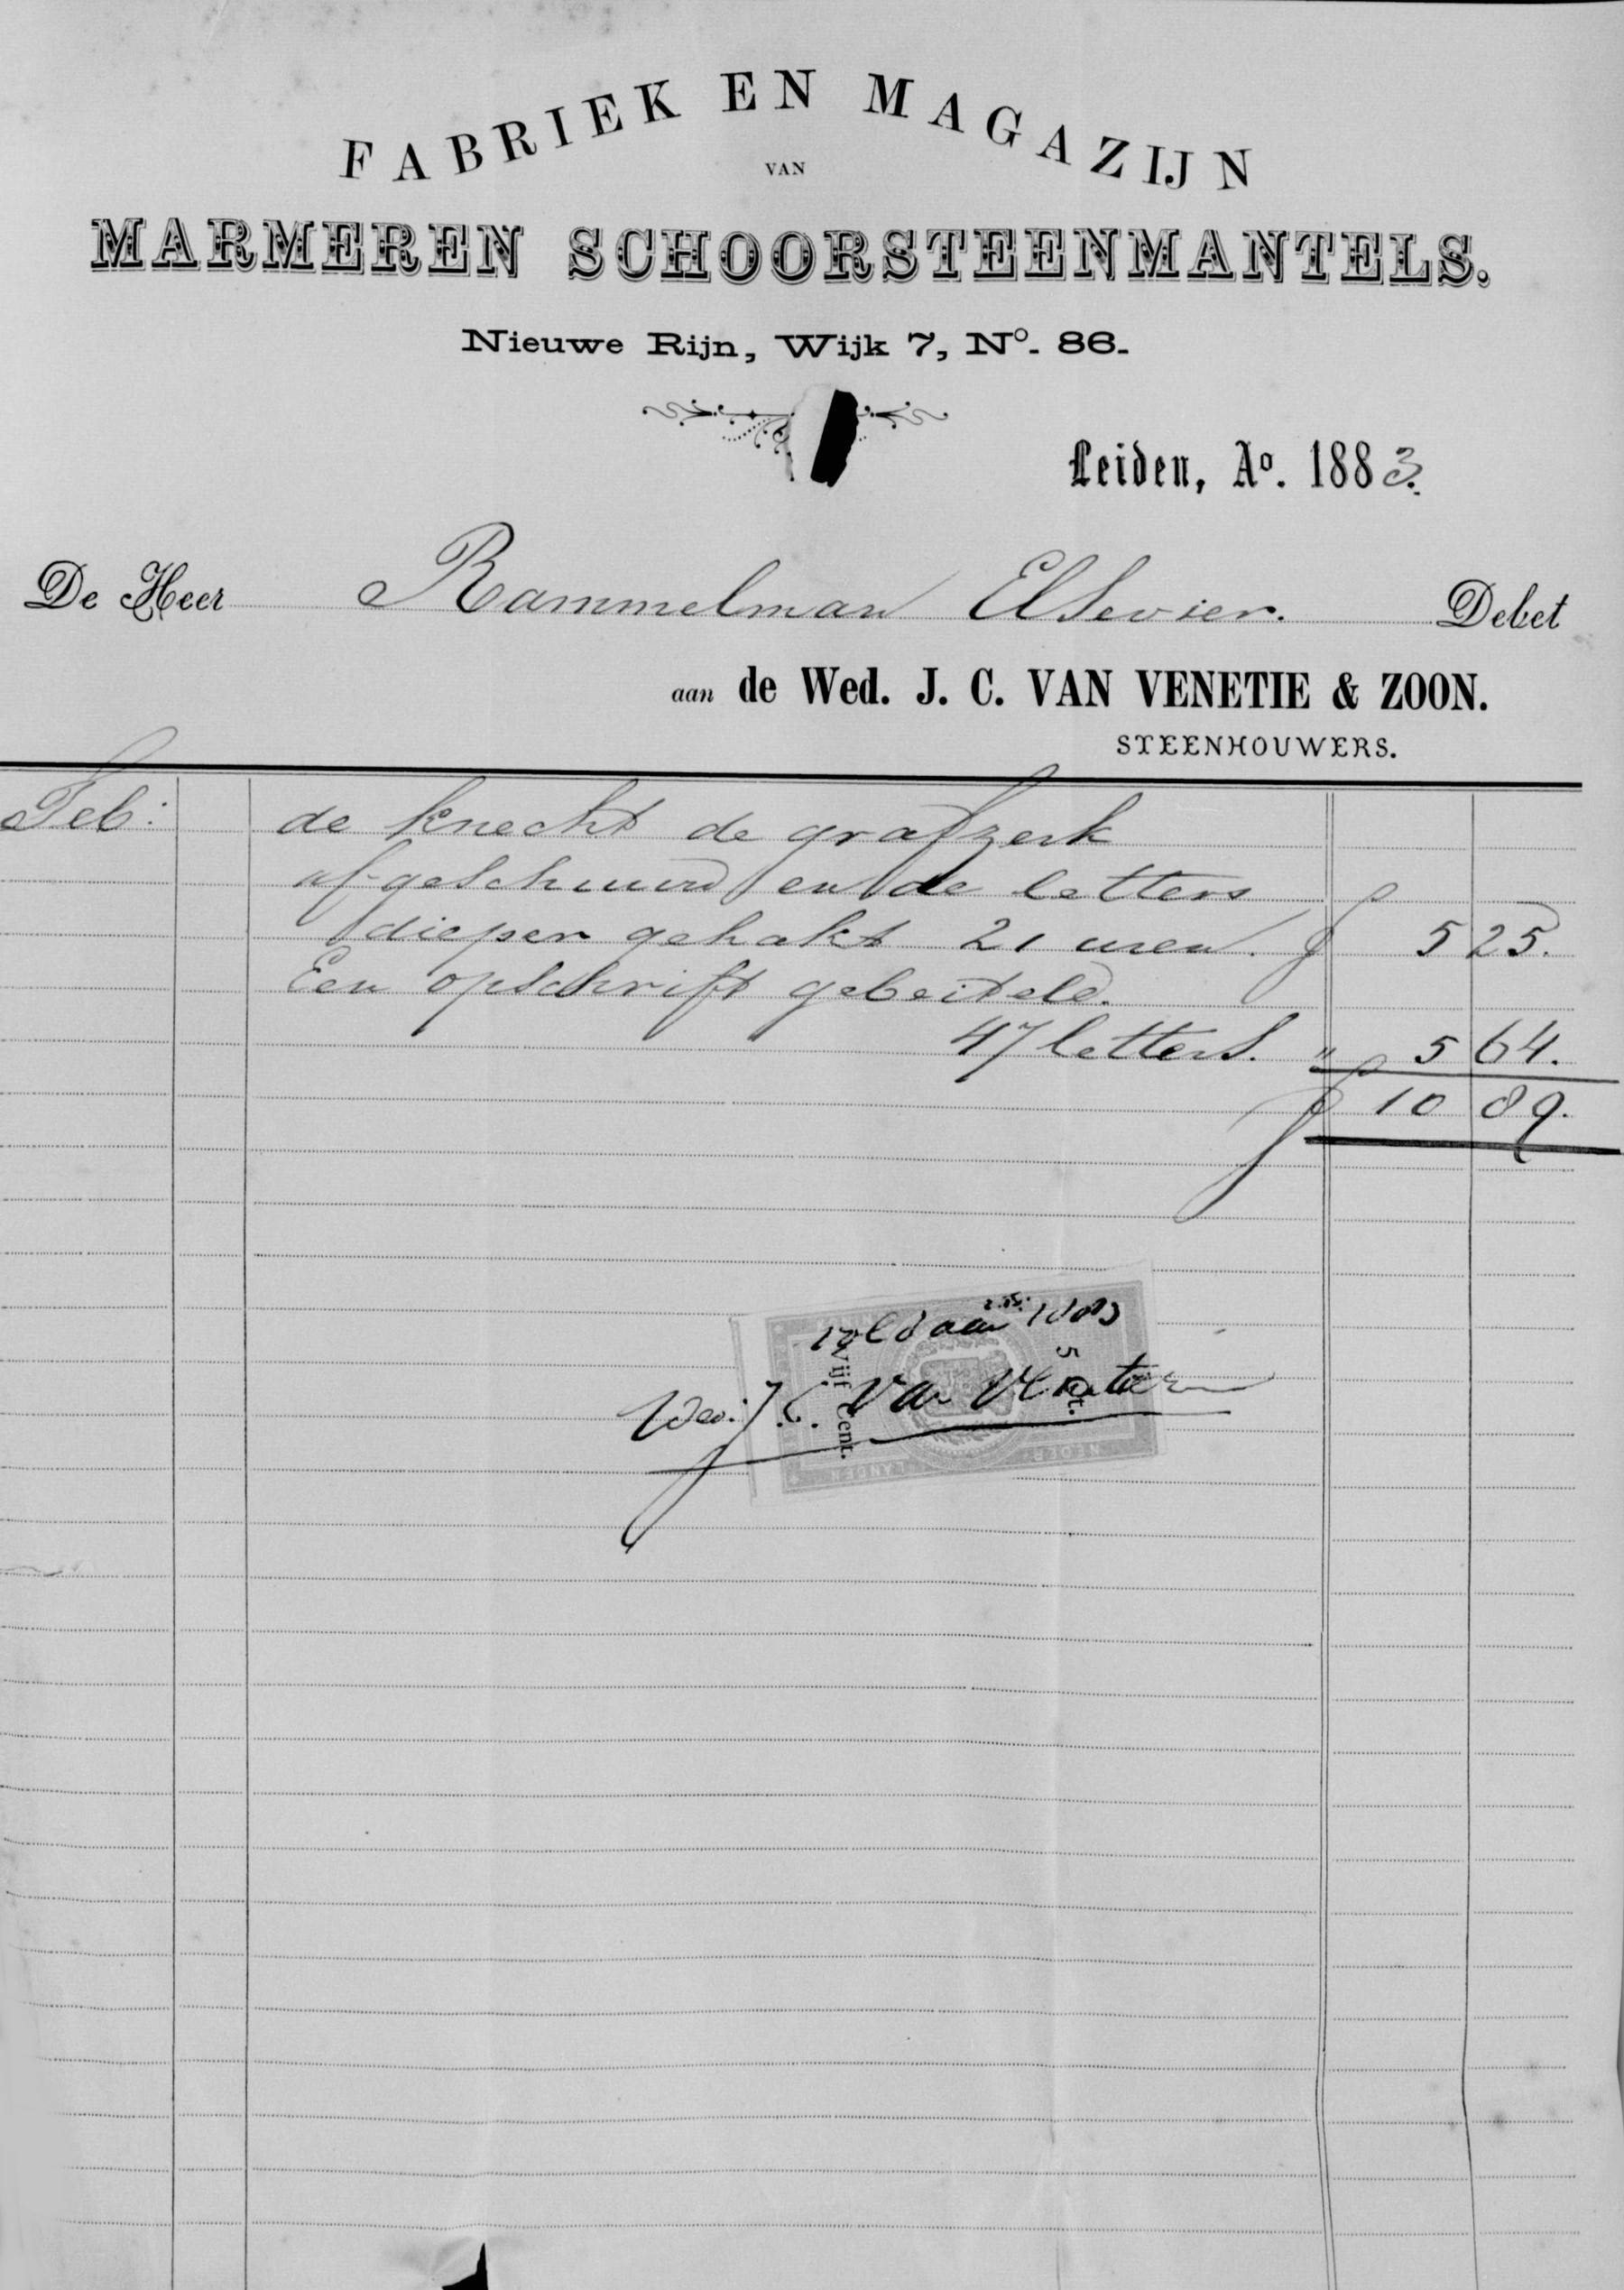 FABRIEK EN MAGAZIJN
VAN
MARMEREN SCHOORSTEENMANTELS.
Nieuwe Rijn, Wijk 7, No. 86.
Leiden, Ao. 1883.
De Heer Rammelman Elsevier. Debet
aan de Wed. J. C. VAN VENETIE & ZOON.
STEENHOUWERS.
Feb: de knecht de grafzerk
afgeschuurd en de letters
dieper gehakt 21 uren. f 5 25.
Een opschrift gebeiteld.
47 letters. " 5 64.
f 10 89.
voldaan 1883
5 Ct.
Vijf Cent.
Wed. J. C. Van Venetie
NEDERLANDEN